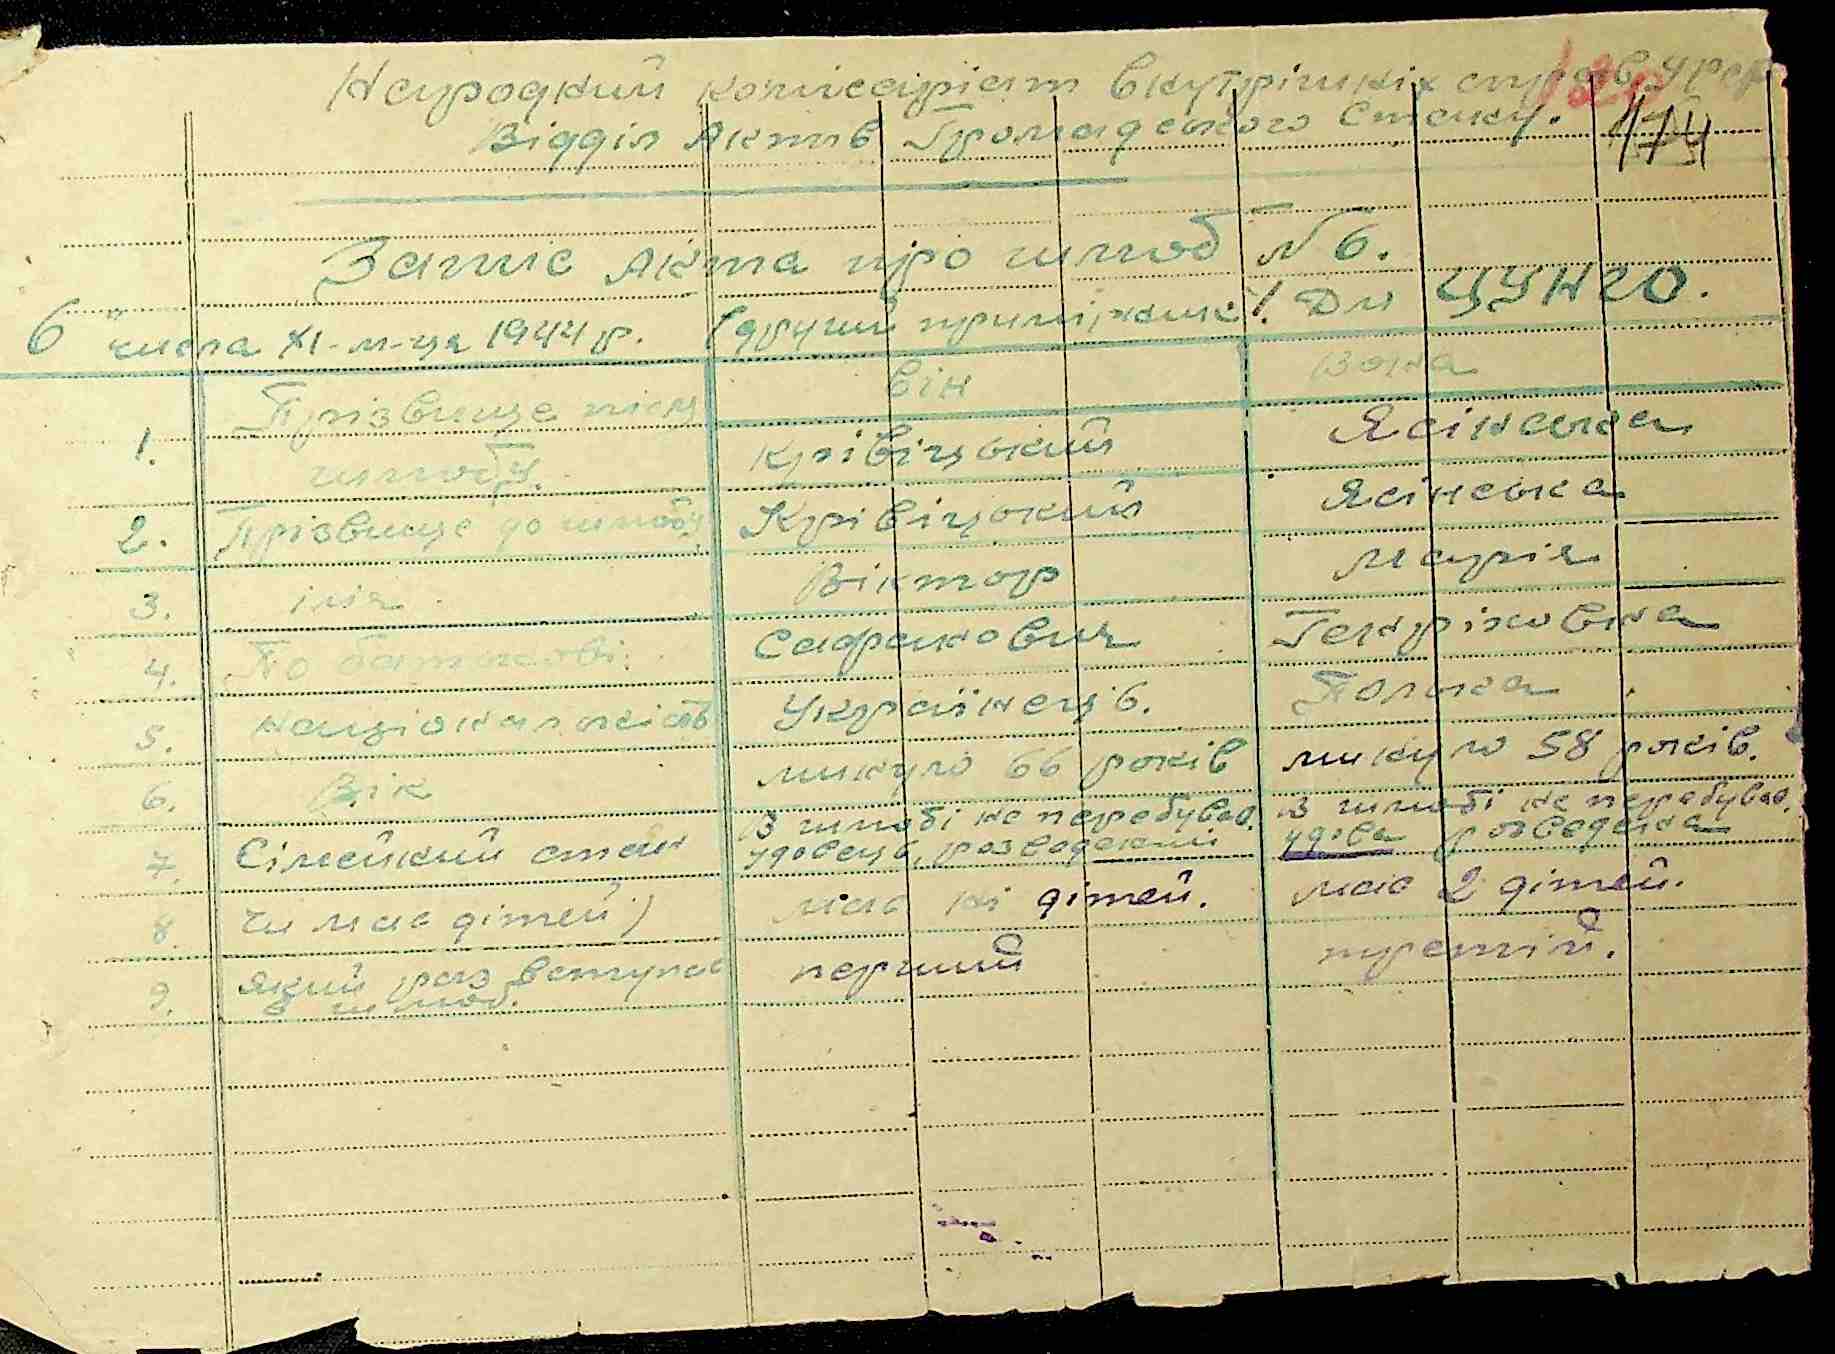 Народний комісаріят внутрішніх справ УРСР
Відділ Актів Громадського Стану.
174
Запис Акта про шлюб № 6.
6 числа XI-м-ця 1944 р. (другий примірник). Для ЦУНГО.
Він Вона
1. Прізвище після шлюбу. Крівіцький Ясінська
2. Прізвище до шлюбу Крівіцький Ясінська
3. імя Віктор Марія
4. По батькові. Сафронович Генріховна
5. національність Українець. Полька
6. Вік минуло 66 років минуло 58 років.
7. Сімейний стан В шлюбі не перебував. удовець, розведений В шлюбі не перебував. удова розведена
8. Чи має дітей) має ні дітей. має 2 дітей.
9. Який раз вступає в шлюб. перший третій.